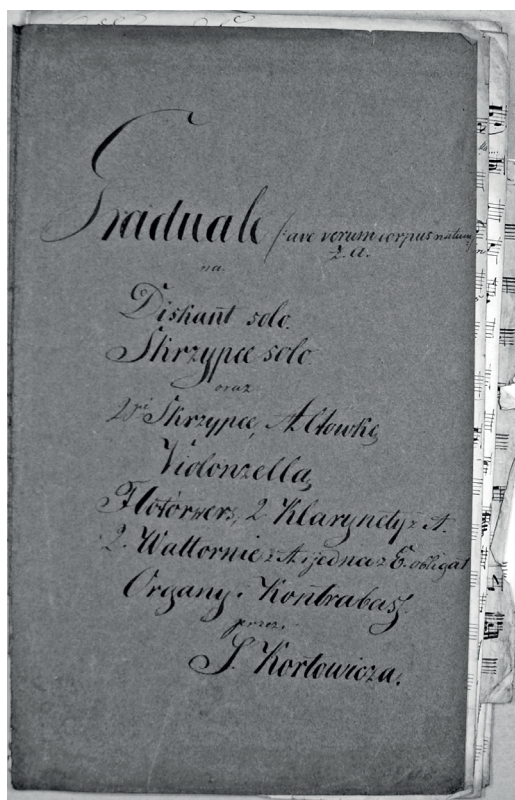 Graduale /: ave verum corpus natum
z. A.
na
Diskant solo.
Skrzypce solo
oraz
2gie Skrzypce, Altówkę,
Violonzella,
Flotorwers, 2 Klarynety z A.
2. Waltornie z A i jedna z E. obligat
Organy. Kontrabas,
przez.
S. Kortowicza.